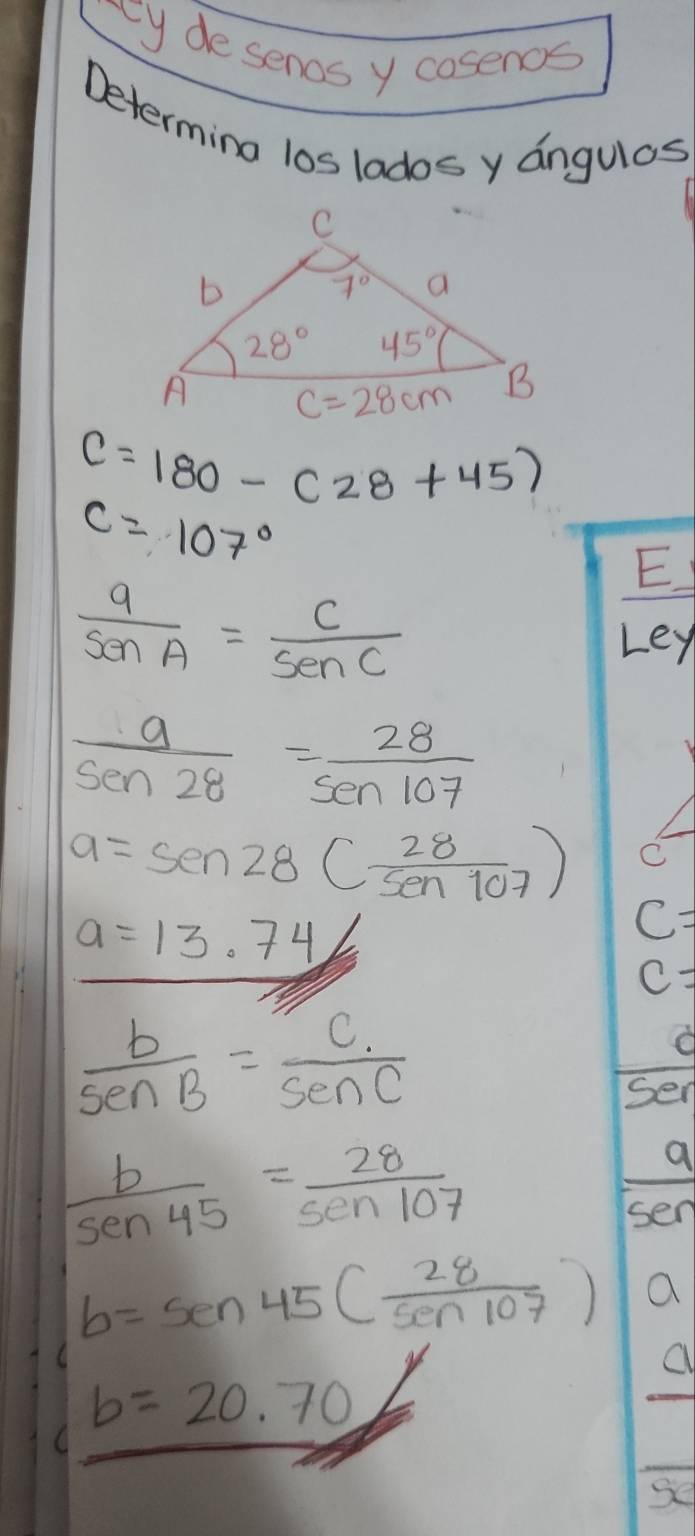 Ley de senos y cosenos
Determina los lados y ángulos
C
b 7° a
28° 45°
A c=28cm B
C= 180 - (28 + 45)
C= 107°
a/sen A = c/sen C
a/sen 28 = 28/sen 107
a= sen 28 (28/sen 107)
a= 13.74
b/sen B = c./sen C
b/sen 45 = 28/sen 107
b= sen 45 (28/sen 107)
b= 20.70
E
Ley
C
C=
C=
sen
a
sen
a
a